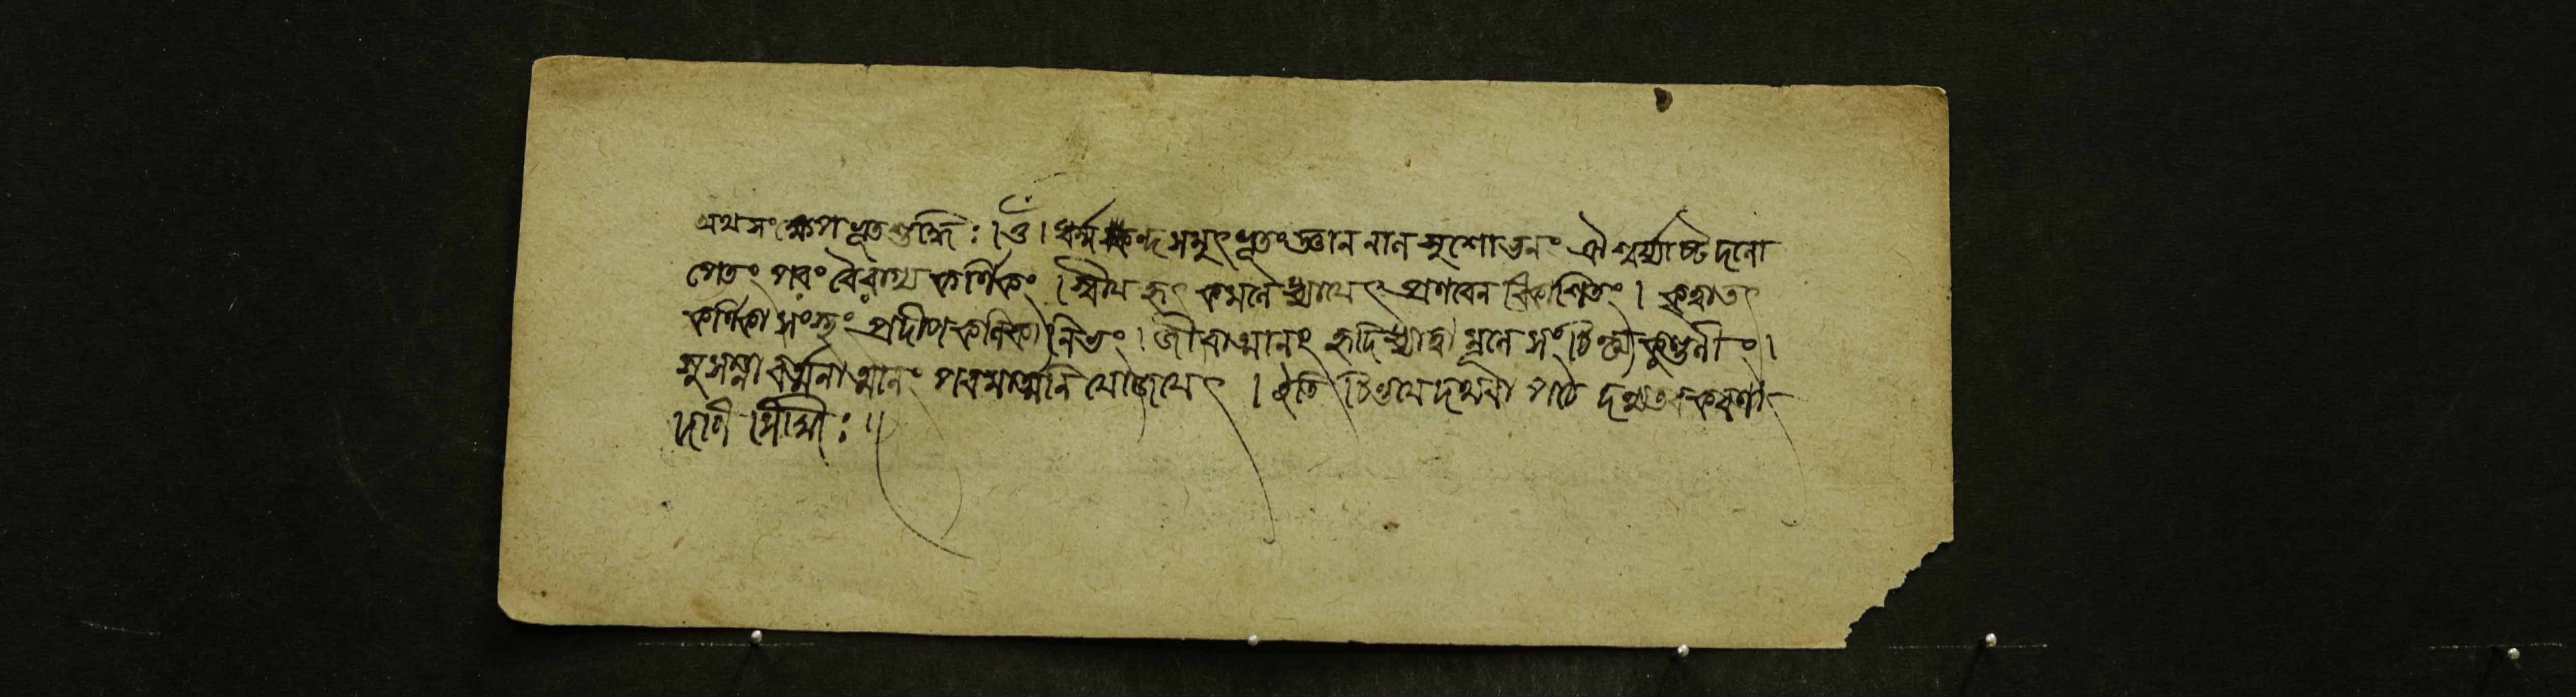 অথ সংক্ষেপ ভূতশুদ্ধিঃ । ওঁ । ধর্ম্মকন্দসমুৎভূতং জ্ঞাননালসুশোভনং ঐশ্বর্য্যাষ্টদলো
পেতং পরং বৈরাগ্য কর্ণিকং । স্বীয় হৃৎকমলে ধ্যায়েৎ প্রণবেন বিকাশিতং । কৃত্বাতৎ
কর্ণিকাসংস্থং প্রদীপকলিকানিভং । জীবাত্মানং হৃদিধ্যাত্বা মূলে সংচিন্ত্য কুণ্ডলীং ।
সুসম্না বর্ত্মনাত্মানং পরমাত্মনি যোজয়েৎ । ইতি